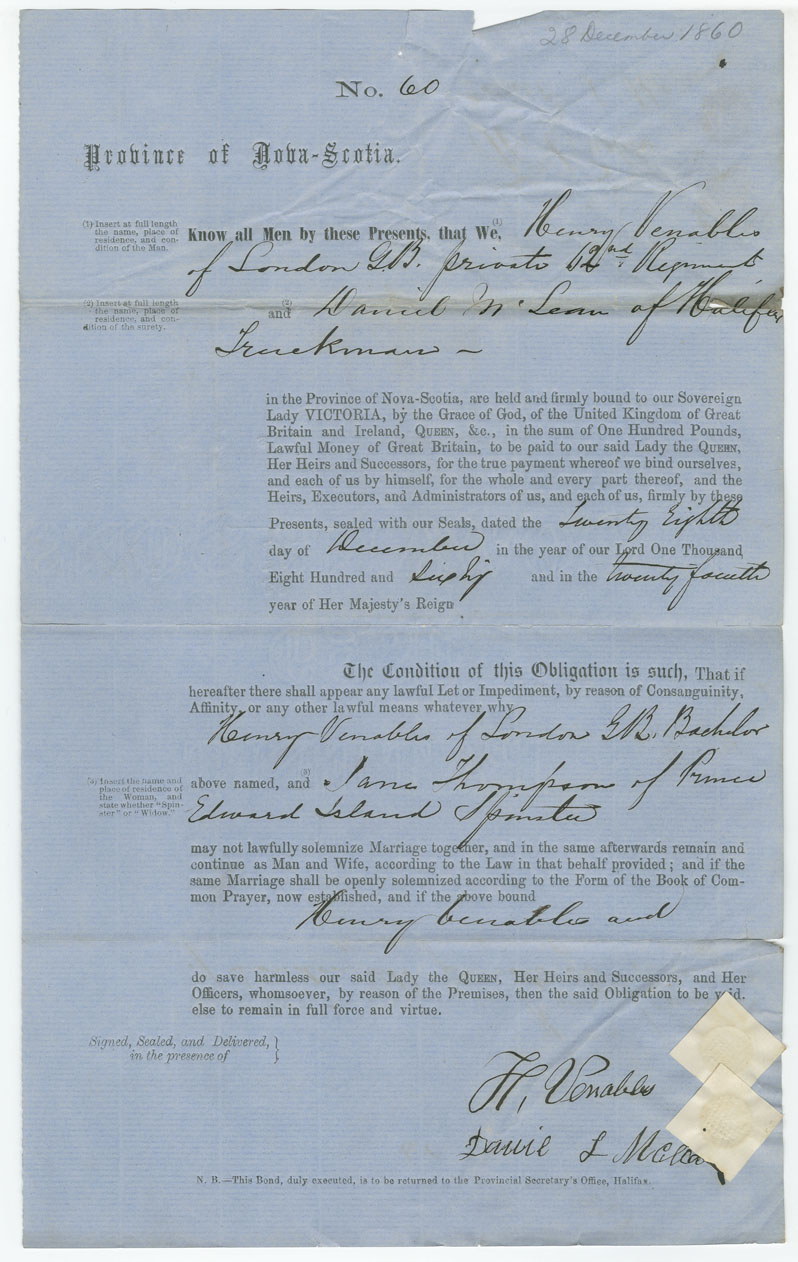 28 December 1860
No. 60
Province of Nova-Scotia.
(1) Insert at full length
the name, place of
residence, and con-
dition of the Man.
Know all Men by these Presents, that We, (1) Henry Venables
of London G.B. private 62nd. Regiment
(2) Insert at full length
the name, place of
residence, and con-
dition of the surety.
and (2) Daniel McLean of Halifax
Truckman –
in the Province of Nova-Scotia, are held and firmly bound to our Sovereign
Lady VICTORIA, by the Grace of God, of the United Kingdom of Great
Britain and Ireland, QUEEN, &c., in the sum of One Hundred Pounds,
Lawful Money of Great Britain, to be paid to our said Lady the QUEEN,
Her Heirs and Successors, for the true payment whereof we bind ourselves,
and each of us by himself, for the whole and every part thereof, and the
Heirs, Executors, and Administrators of us, and each of us, firmly by these
Presents, sealed with our Seals, dated the Twenty Eighth
day of December in the year of our Lord One Thousand
Eight Hundred and Sixty and in the twenty fourth
year of Her Majesty's Reign
The Condition of this Obligation is such, That if
hereafter there shall appear any lawful Let or Impediment, by reason of Consanguinity,
Affinity, or any other lawful means whatever why
Henry Venables of London G.B. Bachelor
(3) Insert the name and
place of residence of
the Woman, and
state whether "Spin-
ster" or "Widow."
above named, and (3) Jane Thompson of Prince
Edward Island Spinster
may not lawfully solemnize Marriage together, and in the same afterwards remain and
continue as Man and Wife, according to the Law in that behalf provided; and if the
same Marriage shall be openly solemnized according to the Form of the Book of Com-
mon Prayer, now established, and if the above bound
Henry Venables and
do save harmless our said Lady the QUEEN, Her Heirs and Successors, and Her
Officers, whomsoever, by reason of the Premises, then the said Obligation to be void.
else to remain in full force and virtue.
Signed, Sealed, and Delivered, }
in the presence of }
H, Venables
Daniel L
N. B.—This Bond, duly executed, is to be returned to the Provincial Secretary's Office, Halifax.